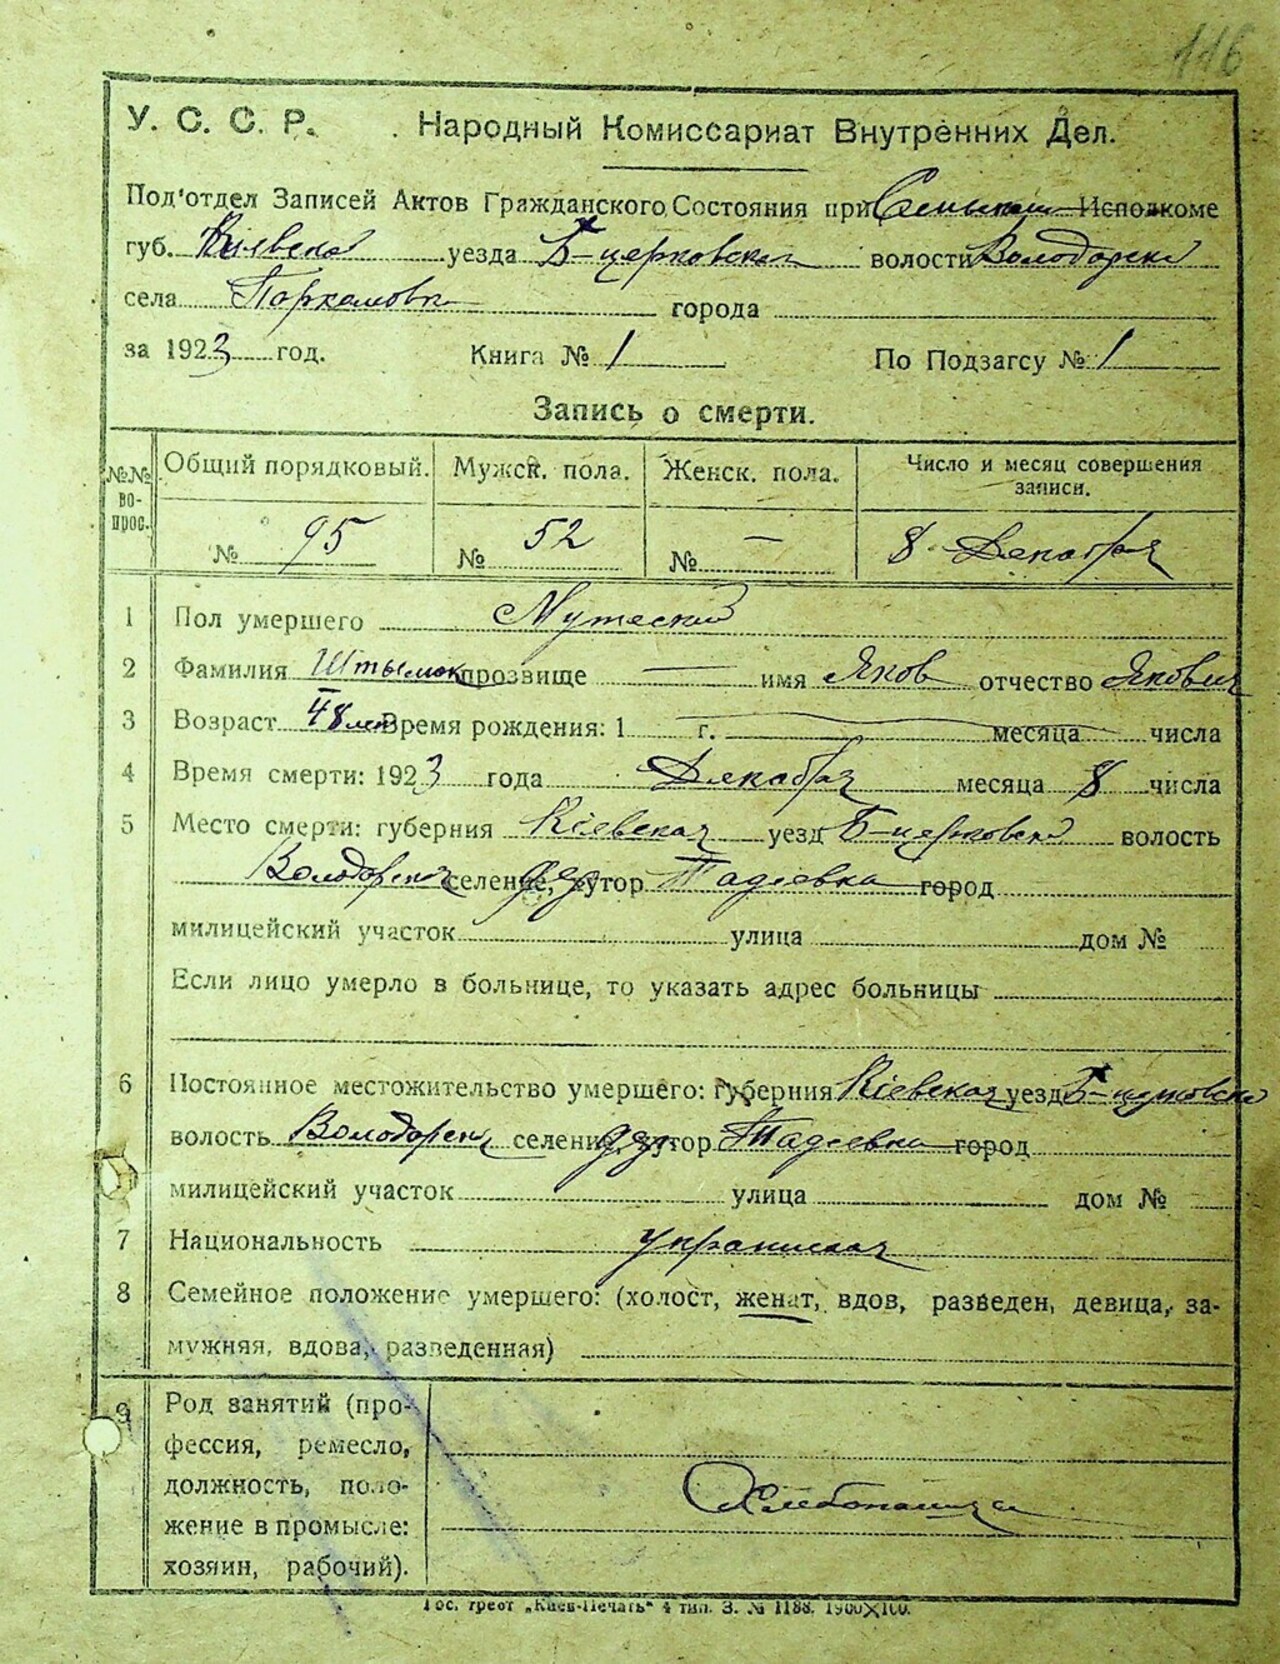 116
У. С. С. Р. Народный Комиссариат Внутренних Дел.
Под'отдел Записей Актов Гражданского Состояния при Исполкоме
губ. Киевской уезда Б-церковская волости Володарской
села города
за 1923 год. Книга № 1 По Подзагсу № 1
Запись о смерти.
№№ вопрос. Общий порядковый. Мужск. пола. Женск. пола. Число и месяц совершения записи.
№ 95 № 52 № — 8 Декабря
1 Пол умершего Мужеский
2 Фамилия Штымок прозвище — имя Яков отчество Якович
3 Возраст 48 лет Время рождения: 1 г. месяца числа
4 Время смерти: 1923 года Декабря месяца 8 числа
5 Место смерти: губерния Кіевская уезд Б-церковской волость
Володарская селение, хутор дер Тадеевка город
милицейский участок улица дом №
Если лицо умерло в больнице, то указать адрес больницы
6 Постоянное местожительство умершего: губерния Кіевская уезд Б-церковской
волость Володарск селение, хутор дер Тадеевка город
милицейский участок улица дом №
7 Национальность
8 Семейное положение умершего: (холост, женат, вдов, разведен, девица, за-
мужняя, вдова, разведенная)
9 Род занятий (про-
фессия, ремесло,
должность, поло-
жение в промысле:
хозяин, рабочий).
Гос. трест „Киев-Печать“ 4 тип. З. № 1188. 1900×100.